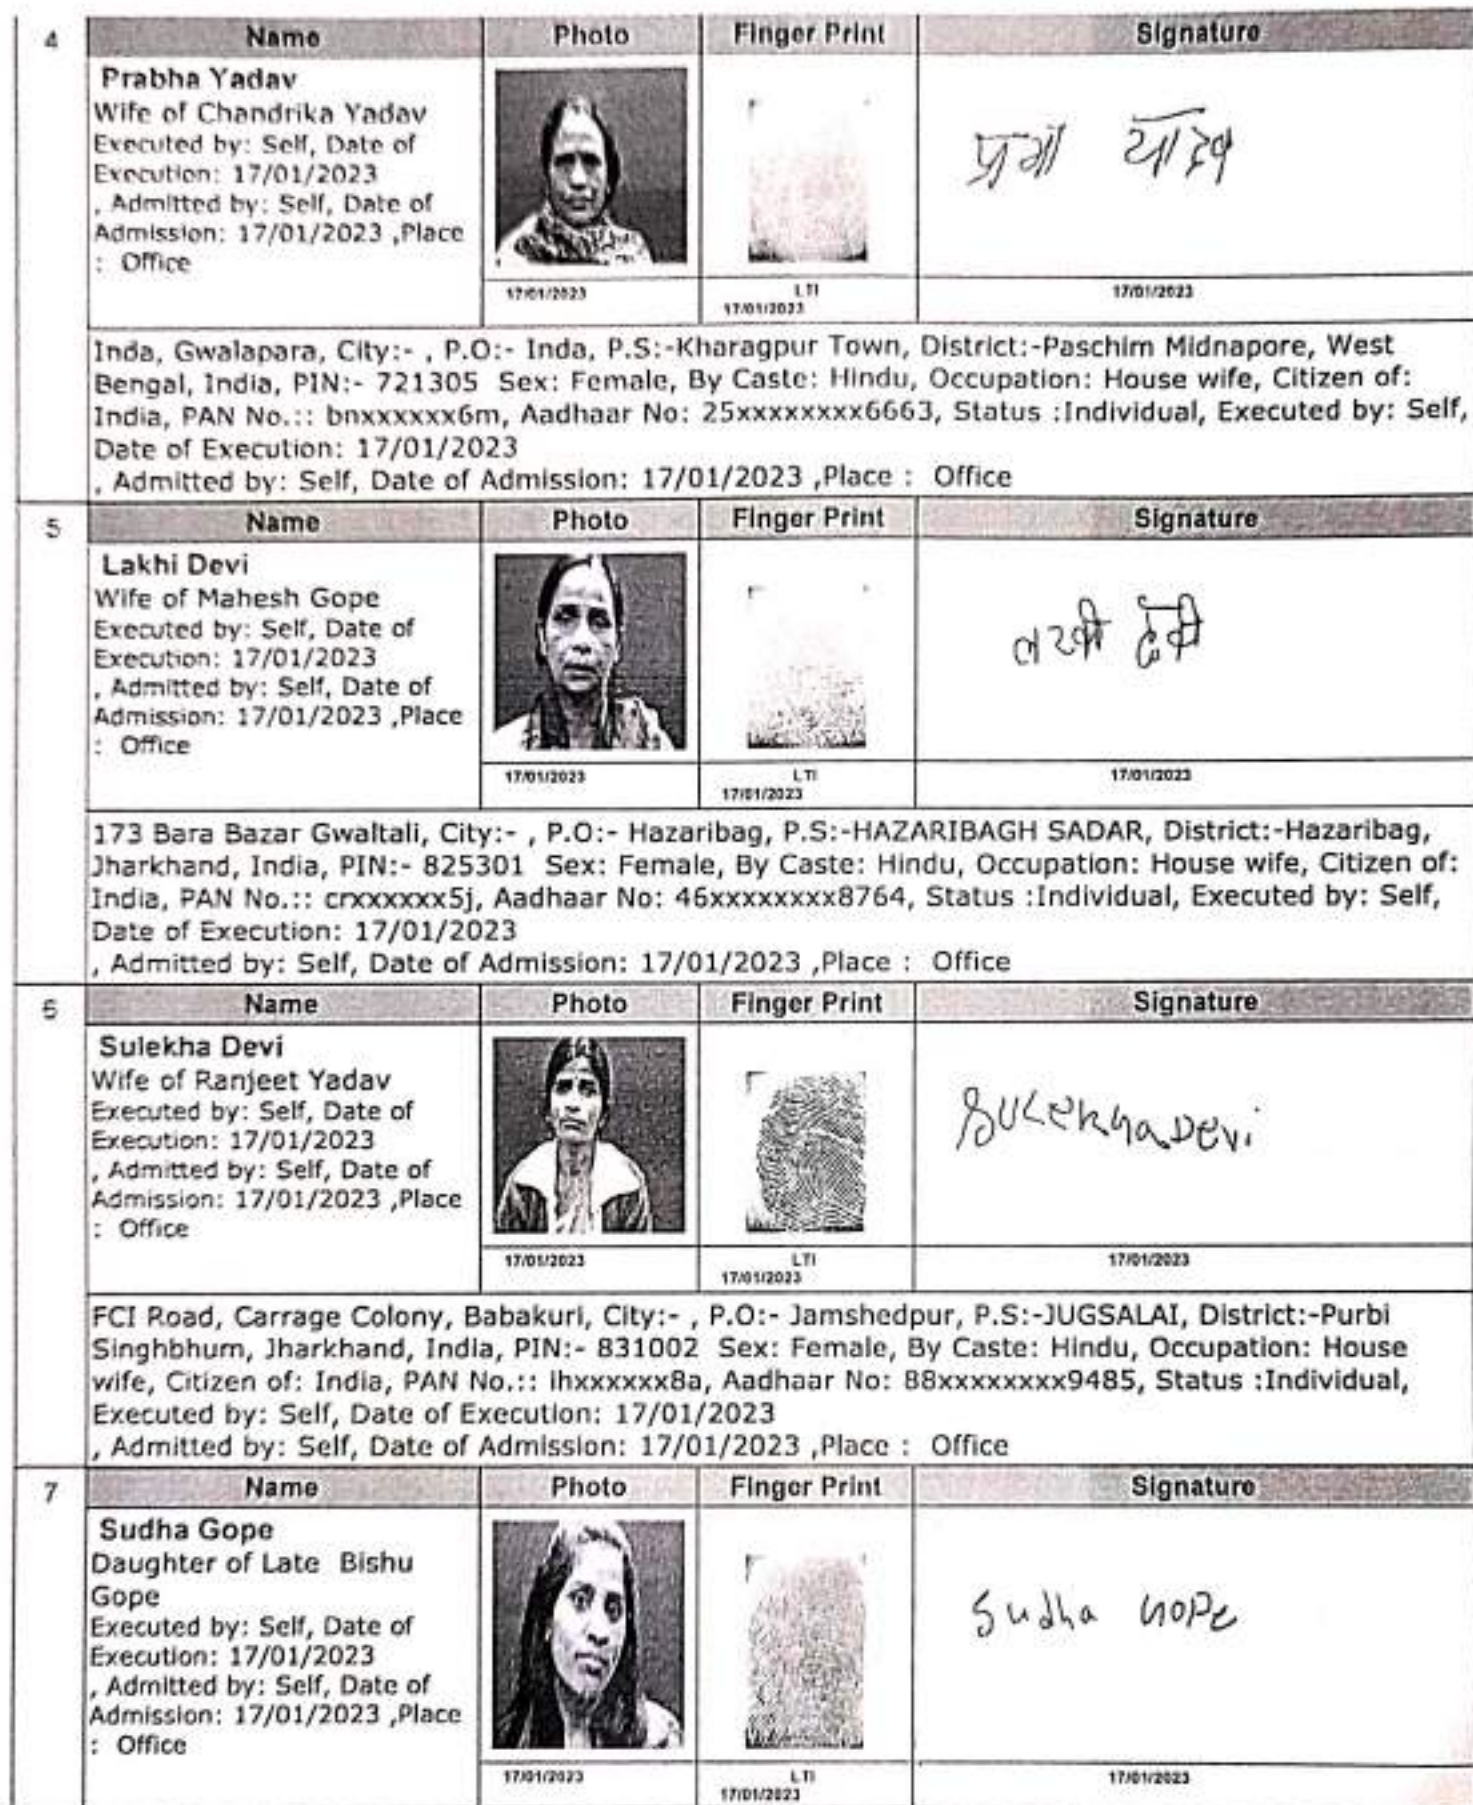 4 Name Photo Finger Print Signature
Prabha Yadav
Wife of Chandrika Yadav
Executed by: Self, Date of
Execution: 17/01/2023
, Admitted by: Self, Date of
Admission: 17/01/2023 ,Place
: Office
प्रभा यादव
17/01/2023 LTI 17/01/2023
17/01/2023
Inda, Gwalapara, City:- , P.O:- Inda, P.S:-Kharagpur Town, District:-Paschim Midnapore, West
Bengal, India, PIN:- 721305 Sex: Female, By Caste: Hindu, Occupation: House wife, Citizen of:
India, PAN No.:: bnxxxxxx6m, Aadhaar No: 25xxxxxxxx6663, Status :Individual, Executed by: Self,
Date of Execution: 17/01/2023
, Admitted by: Self, Date of Admission: 17/01/2023 ,Place : Office
5 Name Photo Finger Print Signature
Lakhi Devi
Wife of Mahesh Gope
Executed by: Self, Date of
Execution: 17/01/2023
, Admitted by: Self, Date of
Admission: 17/01/2023 ,Place
: Office
लखी देवी
17/01/2023 LTI 17/01/2023
17/01/2023
173 Bara Bazar Gwaltali, City:- , P.O:- Hazaribag, P.S:-HAZARIBAGH SADAR, District:-Hazaribag,
Jharkhand, India, PIN:- 825301 Sex: Female, By Caste: Hindu, Occupation: House wife, Citizen of:
India, PAN No.:: crxxxxxx5j, Aadhaar No: 46xxxxxxxx8764, Status :Individual, Executed by: Self,
Date of Execution: 17/01/2023
, Admitted by: Self, Date of Admission: 17/01/2023 ,Place : Office
6 Name Photo Finger Print Signature
Sulekha Devi
Wife of Ranjeet Yadav
Executed by: Self, Date of
Execution: 17/01/2023
, Admitted by: Self, Date of
Admission: 17/01/2023 ,Place
: Office
SULEKhaDevi
17/01/2023 LTI 17/01/2023
17/01/2023
FCI Road, Carrage Colony, Babakuri, City:- , P.O:- Jamshedpur, P.S:-JUGSALAI, District:-Purbi
Singhbhum, Jharkhand, India, PIN:- 831002 Sex: Female, By Caste: Hindu, Occupation: House
wife, Citizen of: India, PAN No.:: ihxxxxxx8a, Aadhaar No: 88xxxxxxxx9485, Status :Individual,
Executed by: Self, Date of Execution: 17/01/2023
, Admitted by: Self, Date of Admission: 17/01/2023 ,Place : Office
7 Name Photo Finger Print Signature
Sudha Gope
Daughter of Late Bishu
Gope
Executed by: Self, Date of
Execution: 17/01/2023
, Admitted by: Self, Date of
Admission: 17/01/2023 ,Place
: Office
Sudha GOPE
17/01/2023 LTI 17/01/2023
17/01/2023